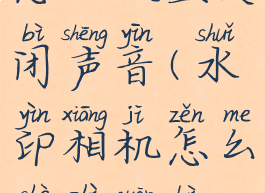 bì shēng yīn shuǐ
闭声音(水
yìn xiàng jī zěn me
印相机怎么